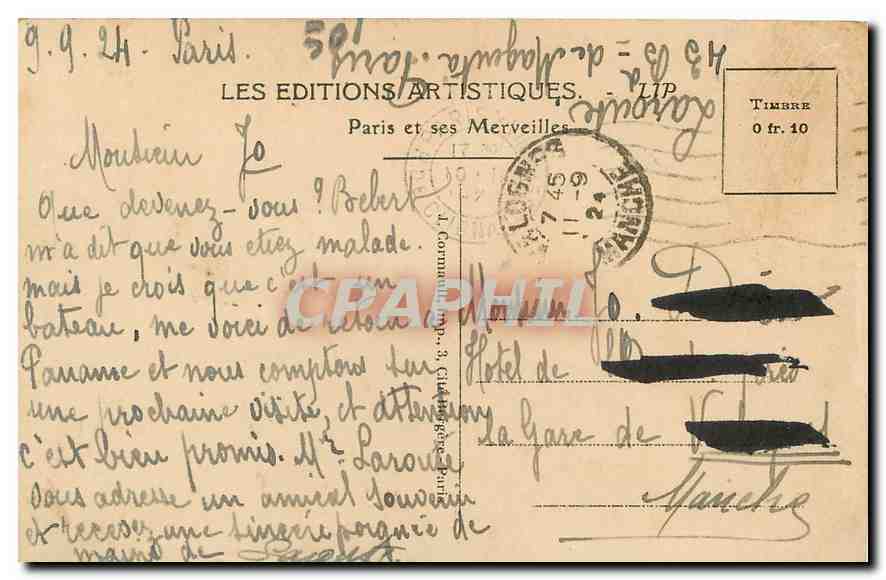 9.9.24. Paris.
501
43 Bd de Magenta. Paris
Laroute
LES EDITIONS ARTISTIQUES. - LIP
Paris et ses Merveilles
TIMBRE
0 fr. 10
Monsieur Jo
Que devenez-vous? Bebert
m'a dit que vous etiez malade.
mais je crois que c'est un
bateau, me voici de retour a
Paname et nous comptons sur
une prochaine visite, et attention
c'est bien promis. Mr Laroute
vous adresse un amical souvenir
et recevez une sincère poignée de
mains de
J. Cormault, Imp., 3, Cité Bergère, Paris
VALOGNES
7 45
11-9
24
MANCHE
Monsieur Jo.
Hotel de
la Gare de
Manche
CPAPHIL